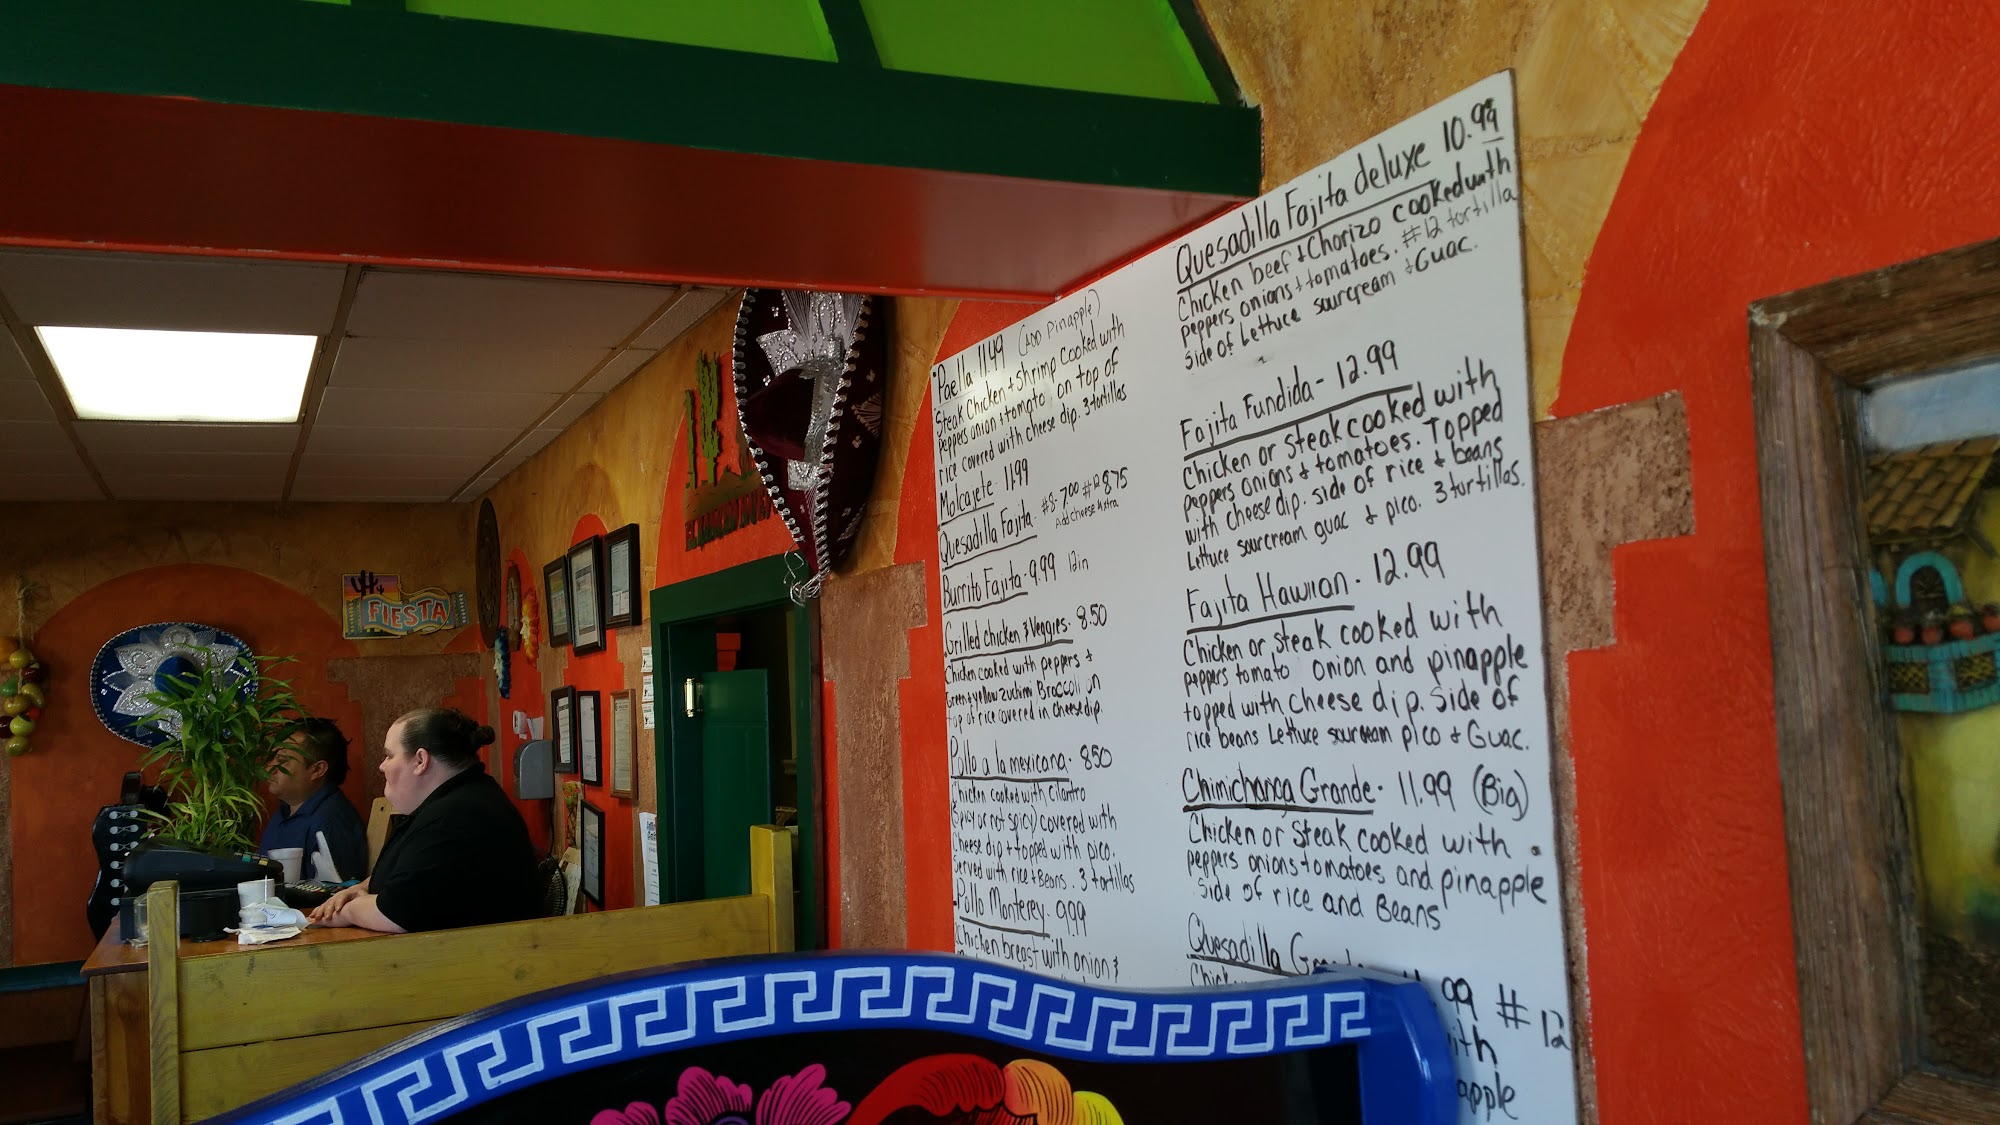 FIESTA
Paella 11.49 (ADD Pinapple)
Steak Chicken + Shrimp cooked with
peppers onion + tomato on top of
rice covered with cheese dip. 3 tortillas
Molcajete - 11.99
Quesadilla Fajita - #8 - 7.00 #12 8.75
Add Cheese Extra
Burrito Fajita - 9.99 12in
Grilled Chicken & Veggies - 8.50
Chicken cooked with peppers +
Green + yellow zuchini Broccoli on
top of rice covered in cheese dip.
Pollo a la mexicana - 8.50
Chicken cooked with Cilantro
(Spicy or not spicy) covered with
Cheese dip + topped with pico.
Served with rice + Beans. 3 tortillas
Pollo Monterey - 9.99
Chicken breast with onion &
Quesadilla Fajita deluxe 10.99
Chicken beef + Chorizo cooked with
peppers onions + tomatoes. #12 tortilla
Side of Lettuce sourcream + Guac.
Fajita Fundida - 12.99
Chicken or Steak cooked with
peppers onions + tomatoes. Topped
with cheese dip. side of rice + beans
Lettuce sourcream guac + pico. 3 tortillas.
Fajita Hawiian - 12.99
Chicken or Steak cooked with
peppers tomato onion and pinapple
topped with cheese dip. Side of
rice beans Lettuce sourcream pico + Guac.
Chimichanga Grande - 11.99 (Big)
Chicken or Steak cooked with
peppers onions + tomatoes and pinapple
Side of rice and Beans
Quesadilla .99 #12
Chick
with